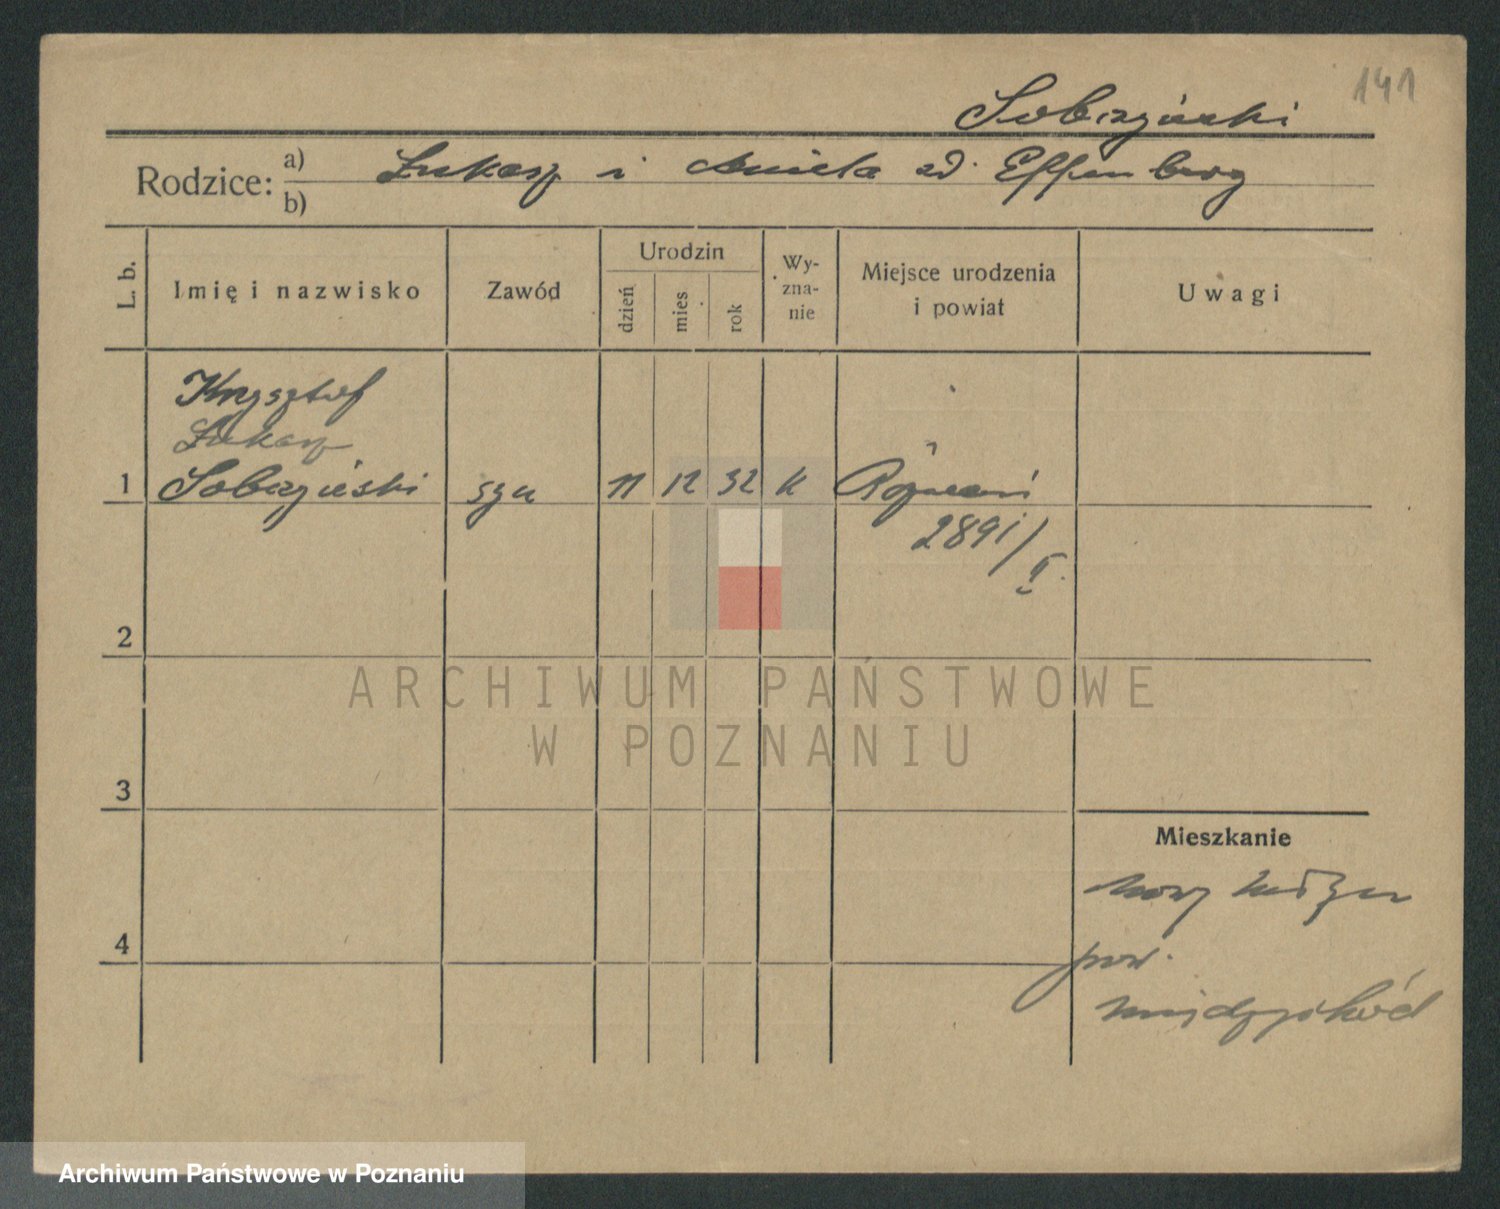 141
Sobczyński
Rodzice: a) Łukasz i Aniela zd. Effenberg
b)
L. b.
Imię i nazwisko
Zawód
Urodzin
dzień
mies
rok
Wy-
zna-
nie
Miejsce urodzenia
i powiat
Uwagi
Krzysztof
Łukasz
1 Sobczyński szu 11 12 32 k Poznań
2891/II.
2
3
4
Mieszkanie
nowy
pow.
ARCHIWUM PAŃSTWOWE
W POZNANIU
Archiwum Państwowe w Poznaniu